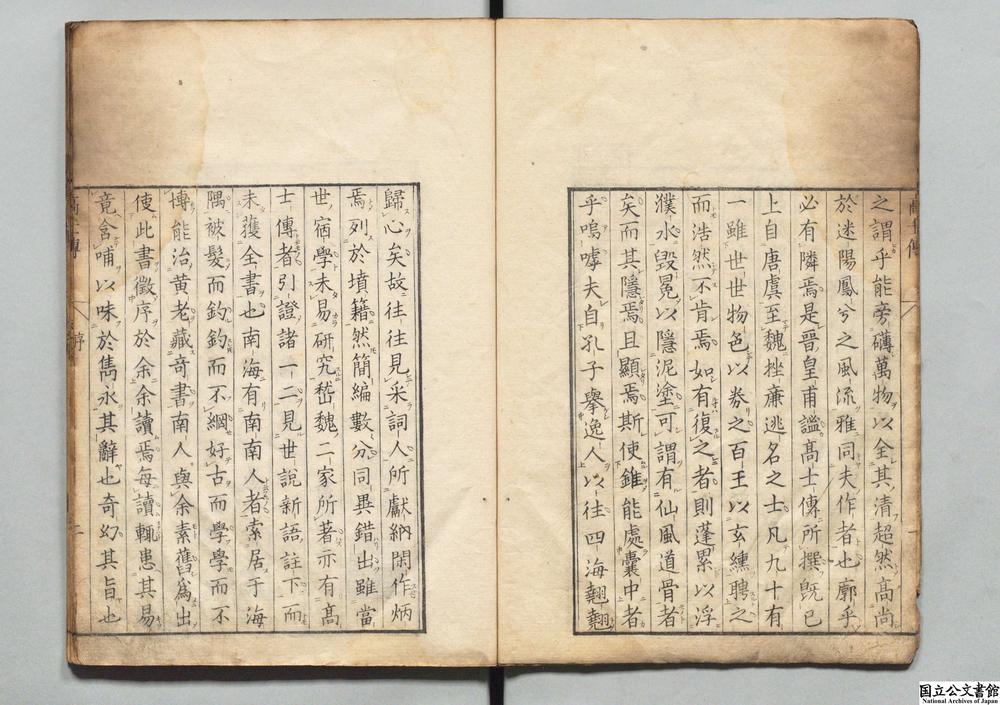 之謂乎能旁礴萬物以全其清超然高尚
於迷陽鳳兮之風流雅同夫作者也廓乎
必有隣焉是晋皇甫謐高士傳所撰既已
上自唐虞至魏挫廉逃名之士凡九十有
一雖世世物色以券之百王以玄纁聘之
而浩然不肯焉如有復之者則蓬累以浮
濮水毀冕以隱泥塗可謂有仙風道骨者
矣而其隱焉且顯焉斯使錐能處囊中者
乎嗚嘑夫自孔子擧逸人以往四海翹翹
歸心矣故往往見采詞人所獻納閑作炳
焉列於墳籍然簡編數分同異錯出雖當
世宿學未易研究嵇魏二家所著亦有高
士傳者引證諸一二見世說新語註下而
未獲全書也南海有南南人者索居于海
隅被髮而釣釣而不綱好古而學學而不
博能治黃老藏奇書南人與余素舊爲出
使此書徵序於余余讀焉每讀輒患其易
竟含哺以味於雋永其辭也奇幻其旨也
序
二
国立公文書館
National Archives of Japan